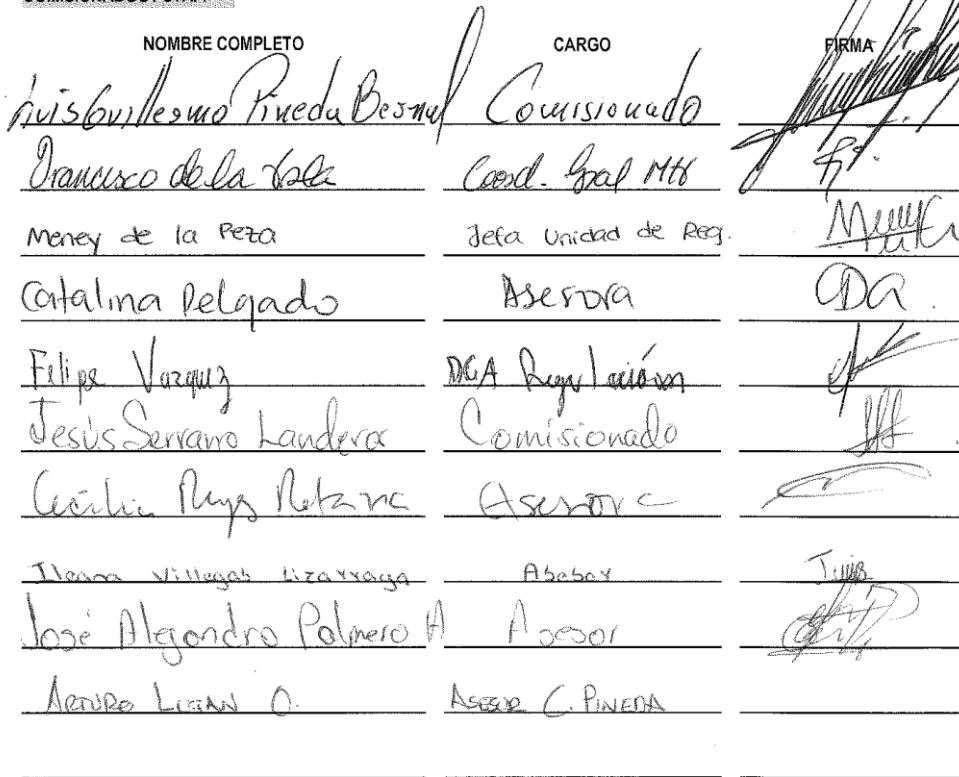 NOMBRE COMPLETO CARGO FIRMA
Luis Guillermo Pineda Bernal Comisionado
Francisco de la Coord. Gral
Meney de la Peza Jefa Unidad de Reg.
Catalina Delgado Asesora CDA.
Felipe Vazquez DGA Regulación
Jesús Serrano Landeros Comisionado
Cecilia Asesora
Ileana Villegas Lizarraga Asesor
José Alejandro Palmero A Asesor
ARTURO O. ASESOR C. PINEDA